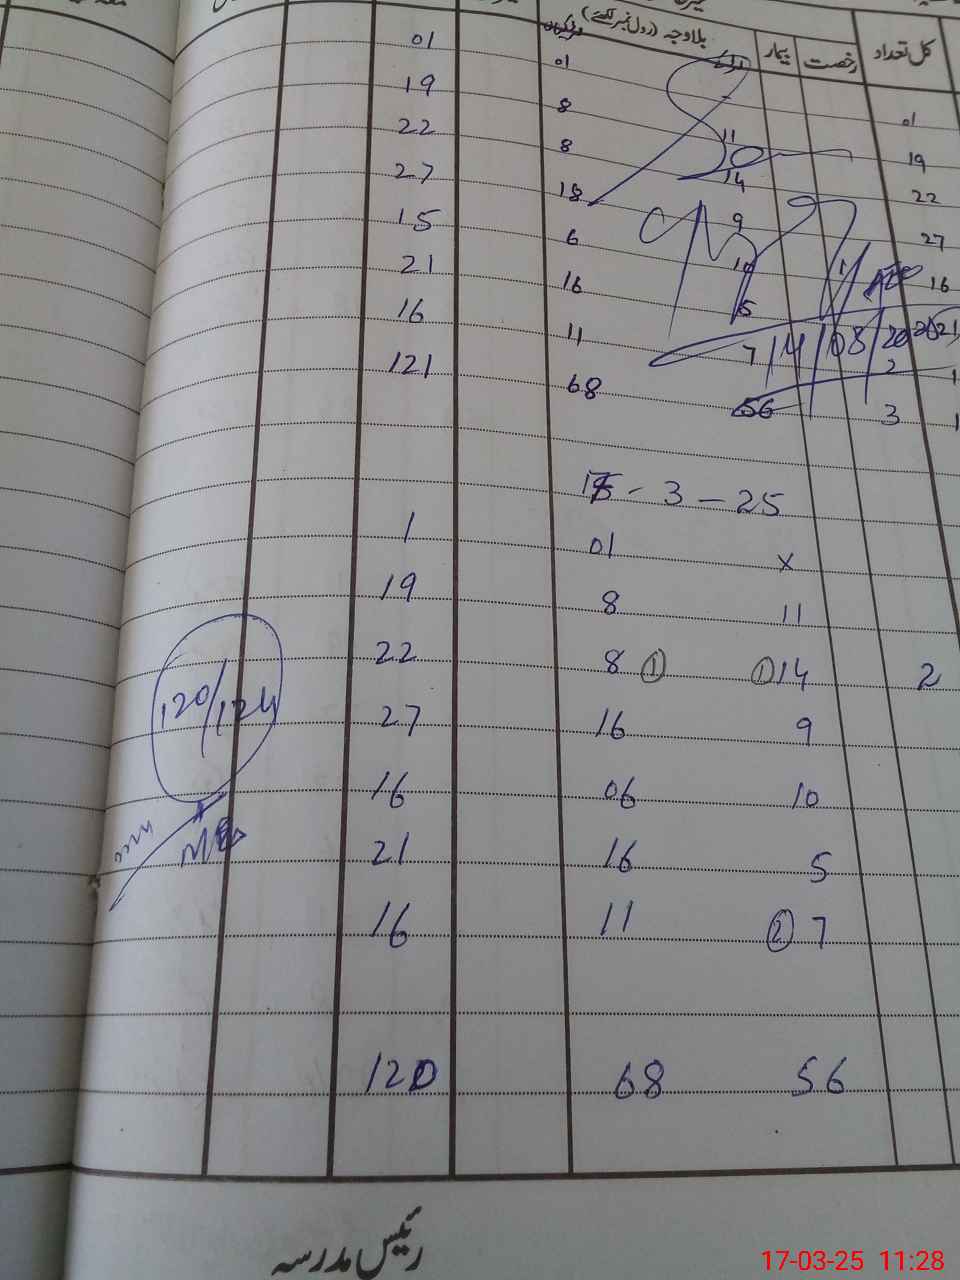 کل تعداد رخصت بیمار بلاوجہ (رول نمبر لکھئے)
01 01 01
19 8 11 19
22 8 14 22
27 18 9 27
15 6 10 1 16
21 16 5 21
16 11 7 2
121 68 56 3
14/08/20
- 3 - 25
1 01 x
19 8 11
22 8 ① ① 14 2
27 16 9
120/124
16 06 10
21 16 5
16 11 ② 7
120 68 56
رئیس مدرسہ
17-03-25 11:28